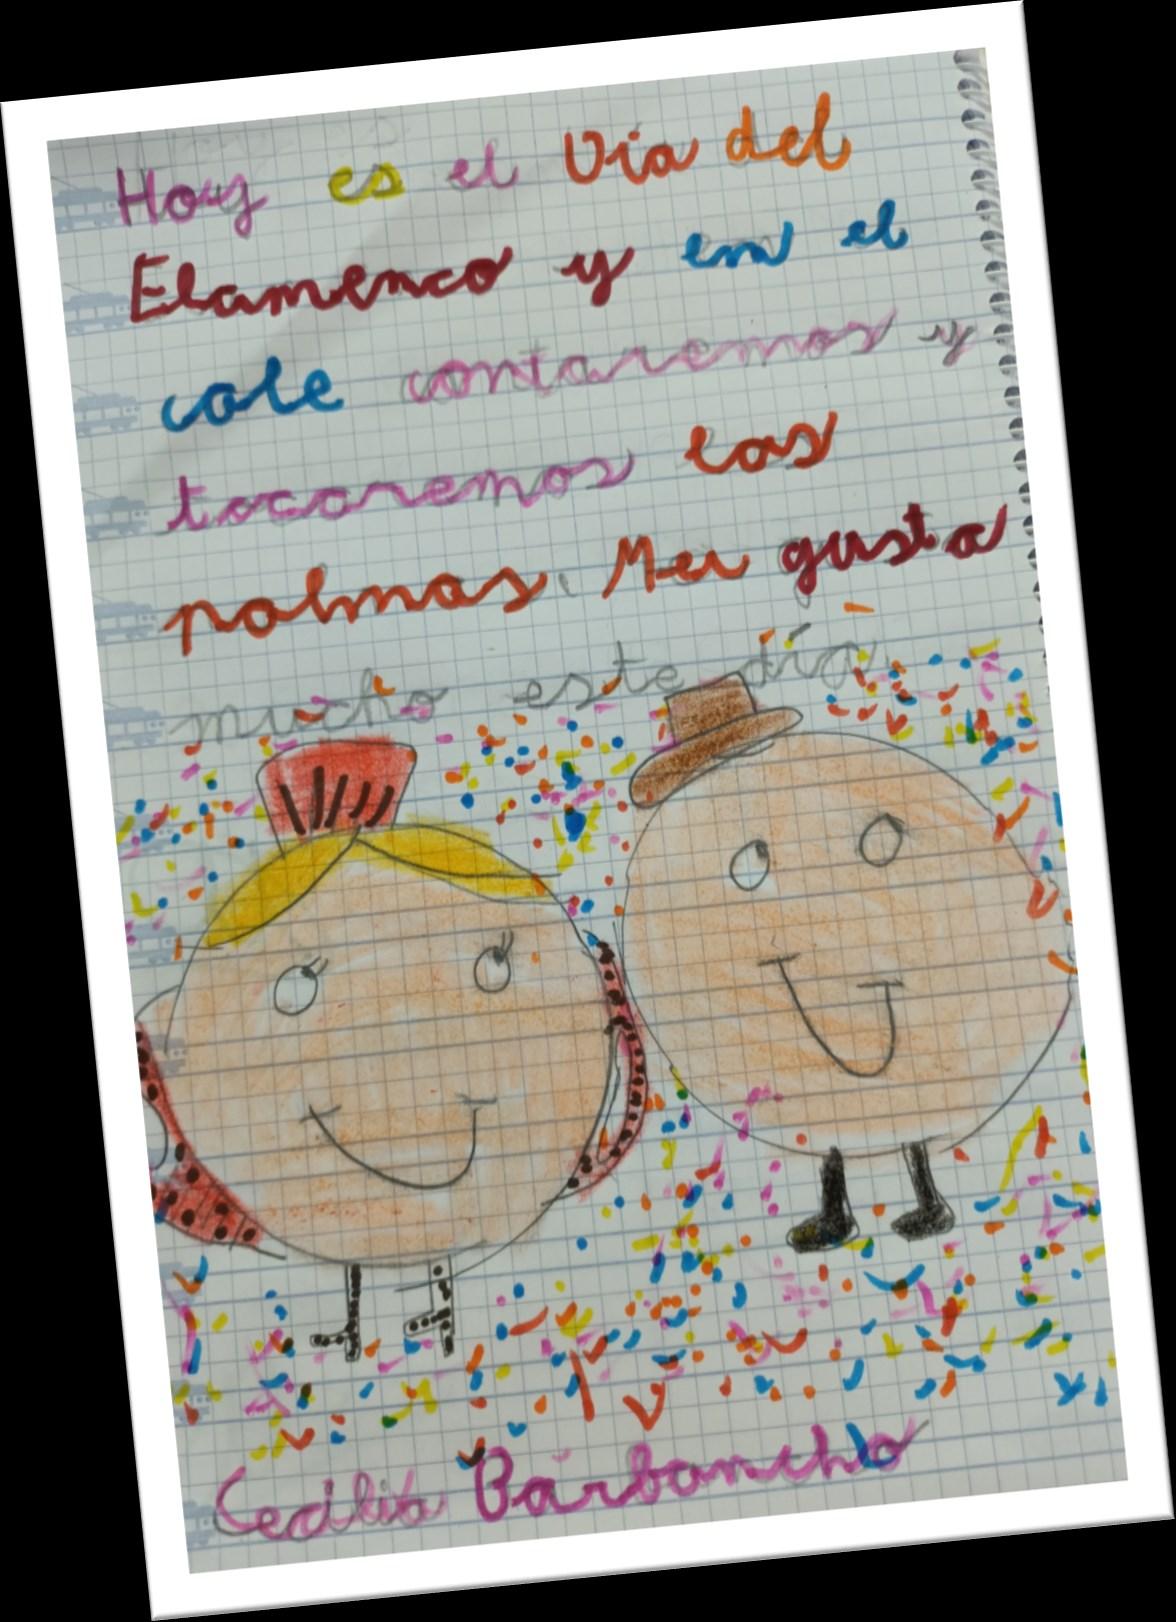 Hoy es el Día del
Flamenco y en el
cole contaremos y
tocaremos las
palmas. Me gusta
mucho este día
Cecilia Barbancho